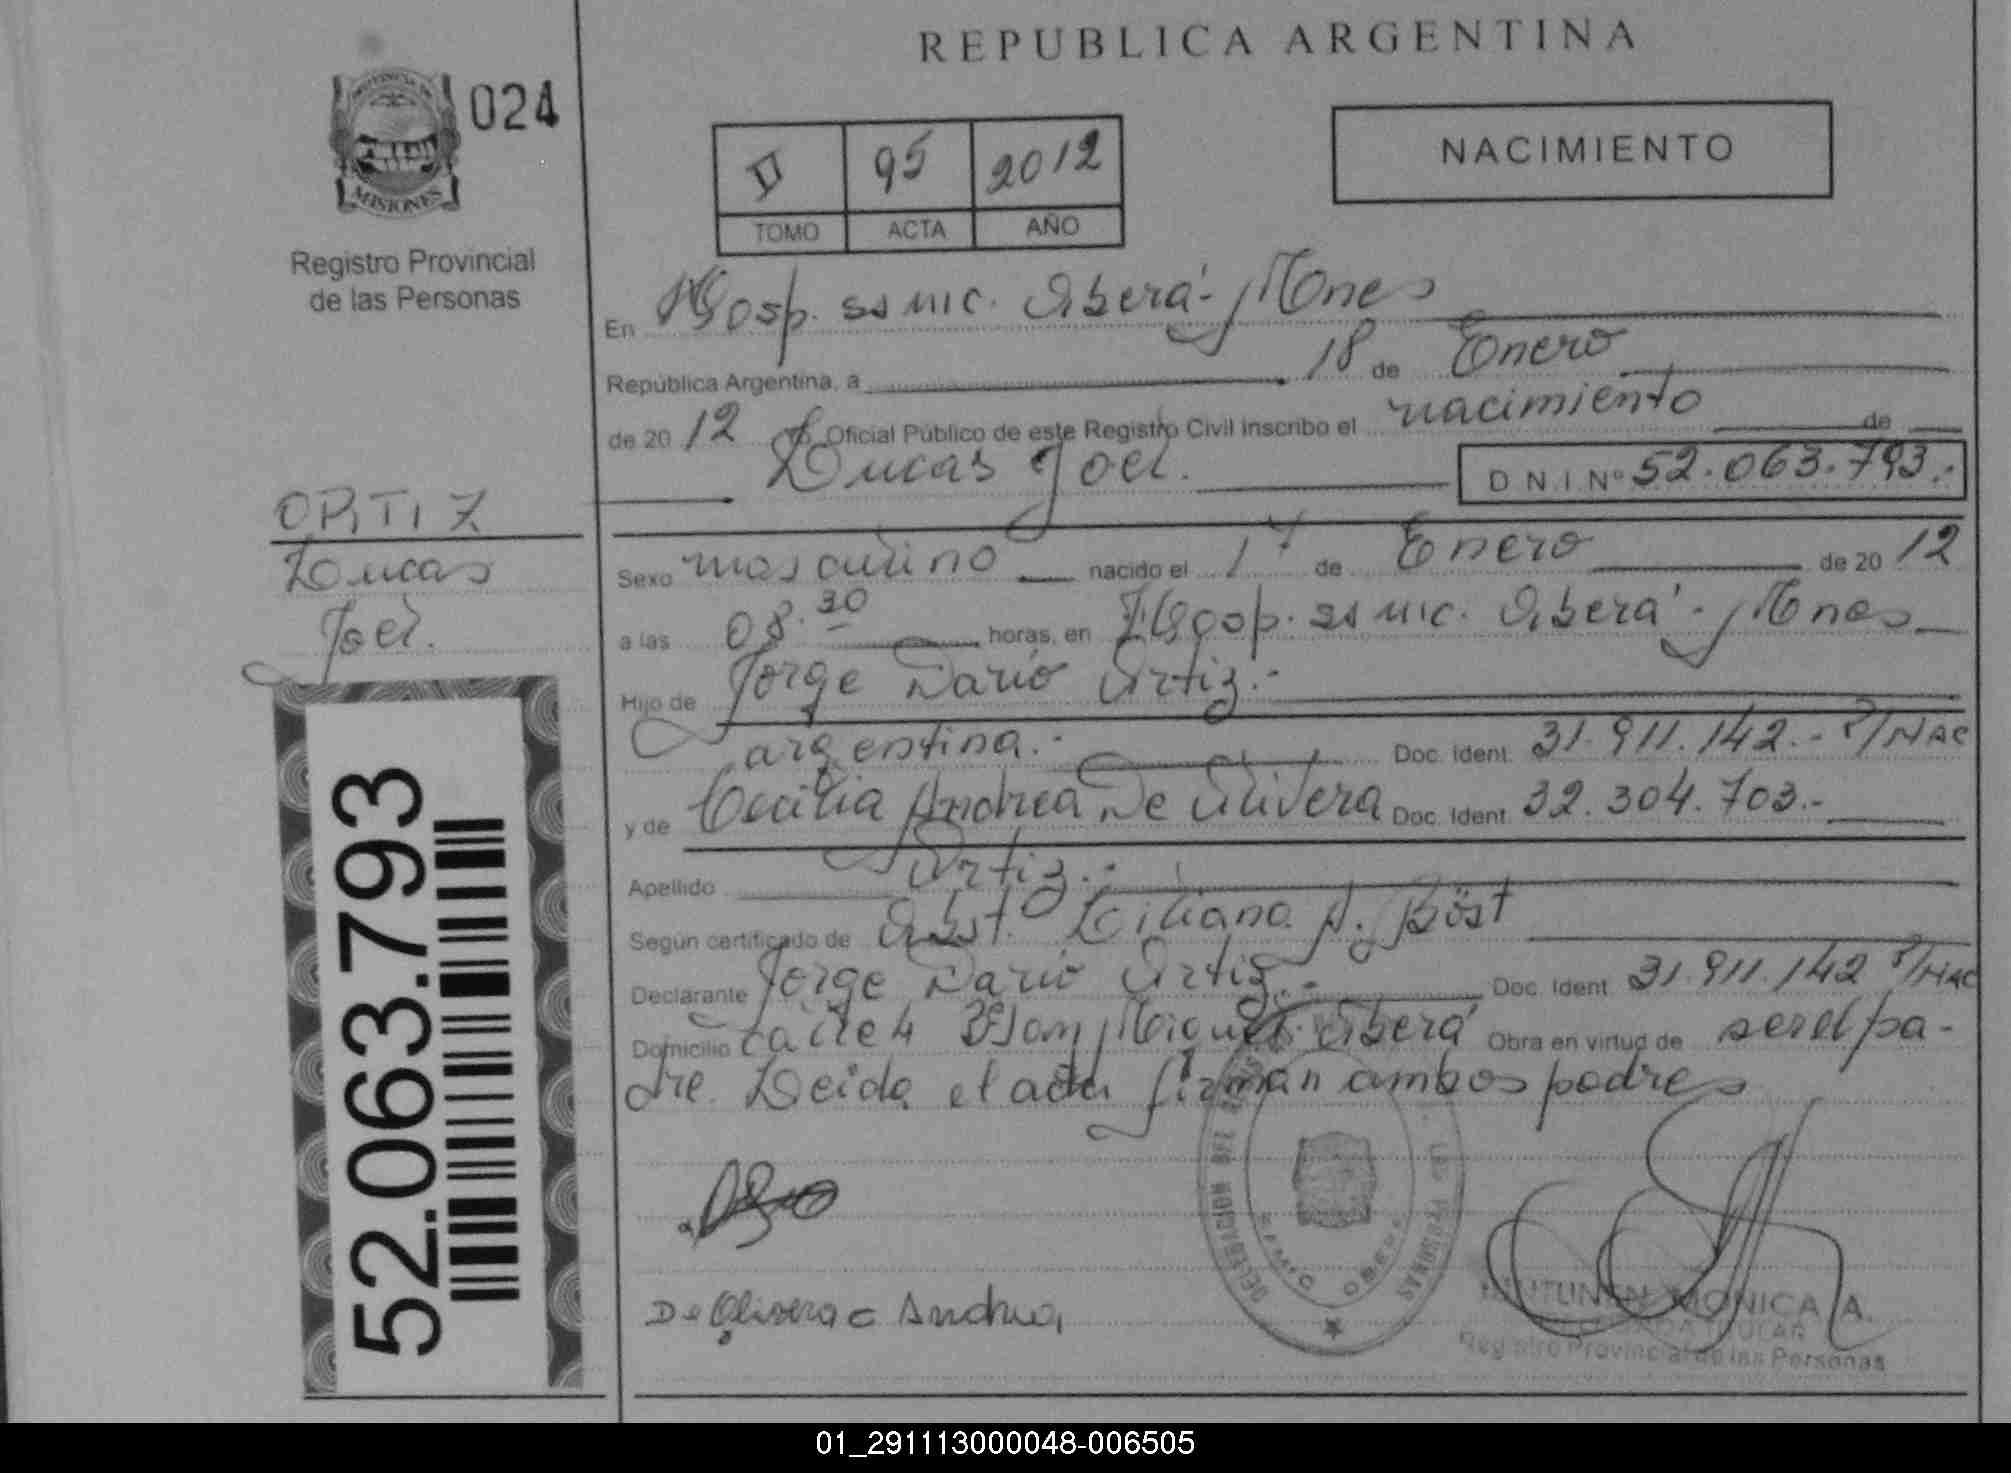 REPUBLICA ARGENTINA
PROVINCIA DE
MISIONES
024
Registro Provincial
de las Personas
II 95 2012
TOMO ACTA AÑO
NACIMIENTO
En Hosp. SAMIC. Oberá - Mnes
República Argentina, a 18 de Enero
de 2012 Oficial Público de este Registro Civil inscribo el nacimiento de
Lucas Joel. D N I Nº 52.063.793.-
ORTIZ
Lucas
Joel.
Sexo masculino nacido el 17 de Enero de 2012
a las 08.30 horas, en Hosp. SAMIC. Oberá - Mnes
Hijo de Jorge Darío Ortiz.-
argentina.- Doc. Ident. 31.911.142.- P/NAC
y de Cecilia Andrea De Olivera Doc. Ident. 32.304.703.-
Apellido Ortiz.-
Según certificado de Obst. Liliana A. Böst
Declarante Jorge Darío Ortiz.- Doc. Ident. 31.911.142 P/NAC
Domicilio calle 4 Bº San Miguel Oberá Obra en virtud de ser el pa-
dre. Leida el acta firman ambos padres
52.063.793
De Olivera C Andrea
MONICA A.
Registro Provincial de las Personas
01_291113000048-006505